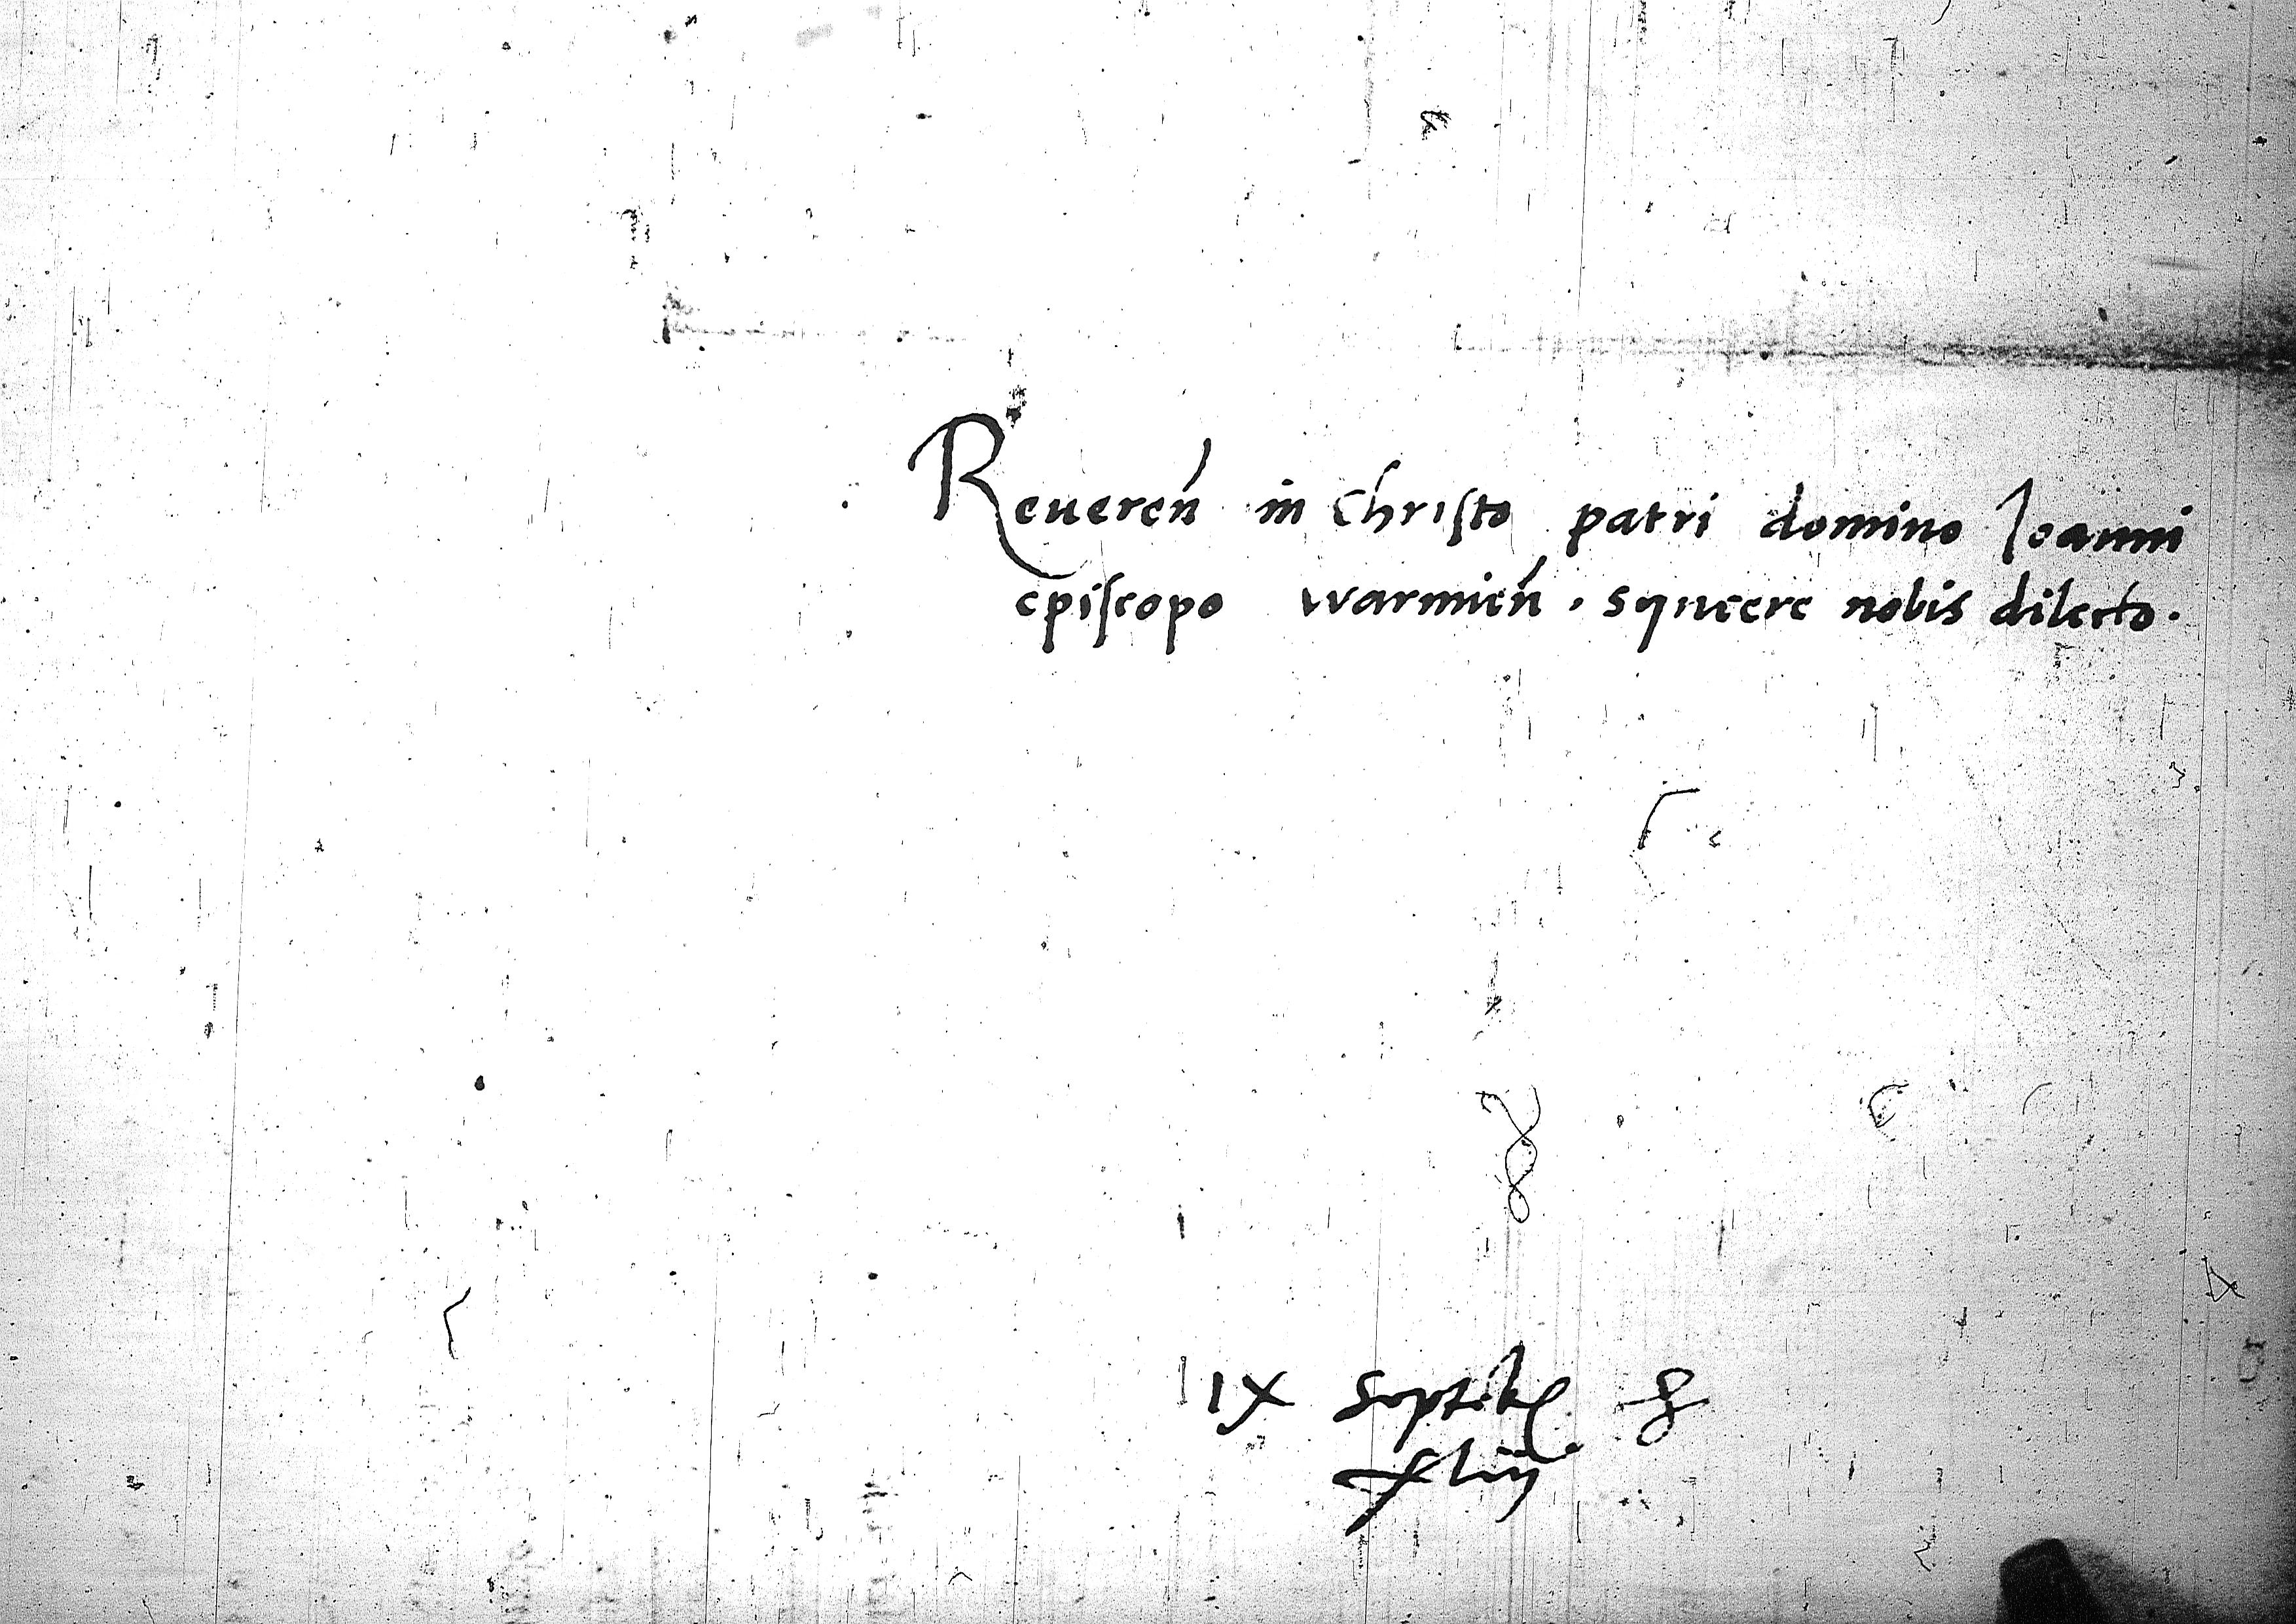 Reueren̄ in Christo patri domino Ioanni
episcopo warmien̄ . syncere nobis dilecto.
IX Septēb
xliij